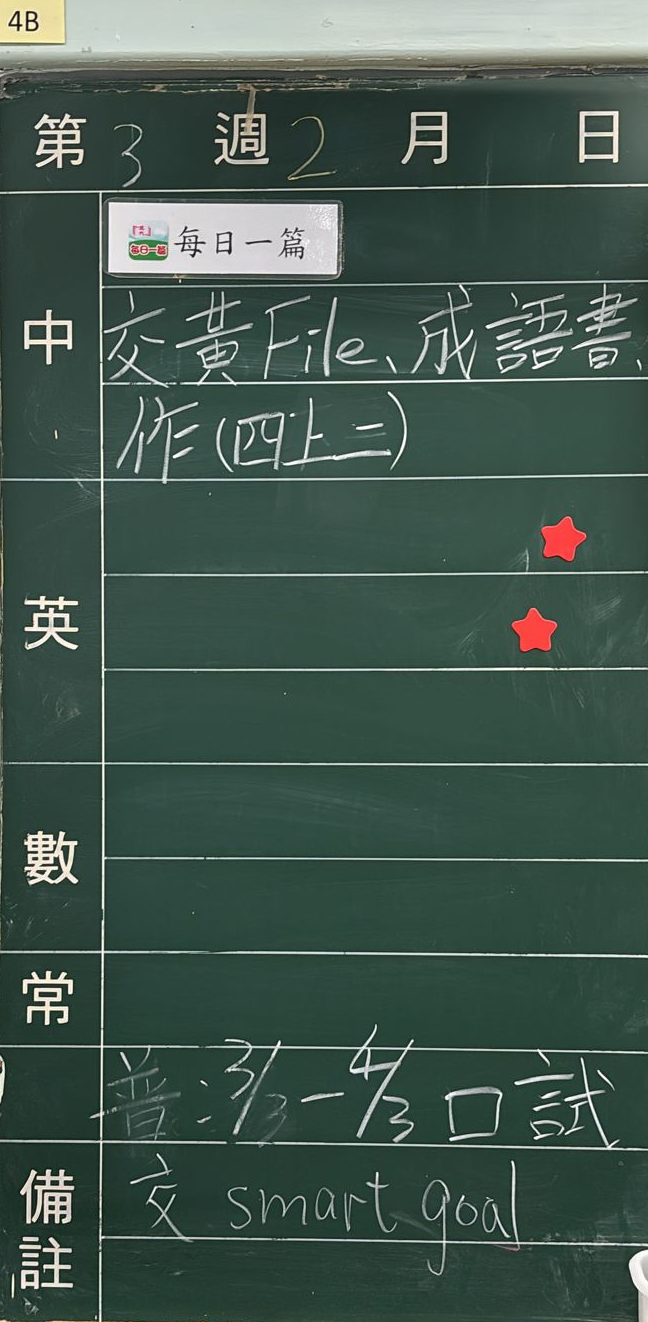 4B
第3週2月日
每日一篇
中
交黃File、成語書、
作(四上二)
英
數
常
普:3/3-4/3口試
備註
交 smart goal